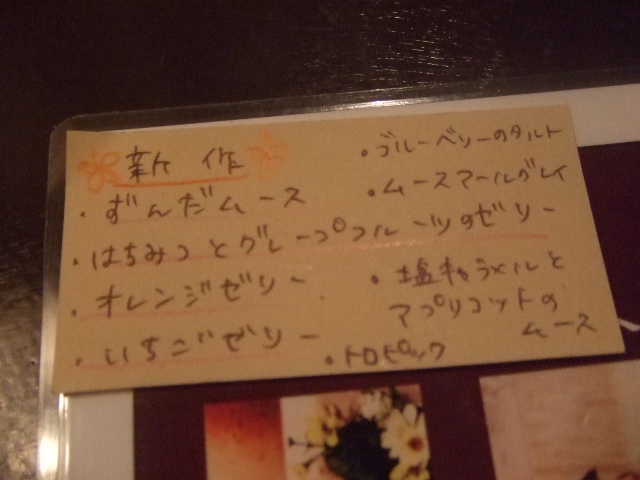 新作
・ずんだムース
・はちみつとグレープフルーツのゼリー
・オレンジゼリー
・いちごゼリー
・ブルーベリーのタルト
・ムースアールグレイ
・塩キャラメルと
アプリコットの
ムース
・トロピック